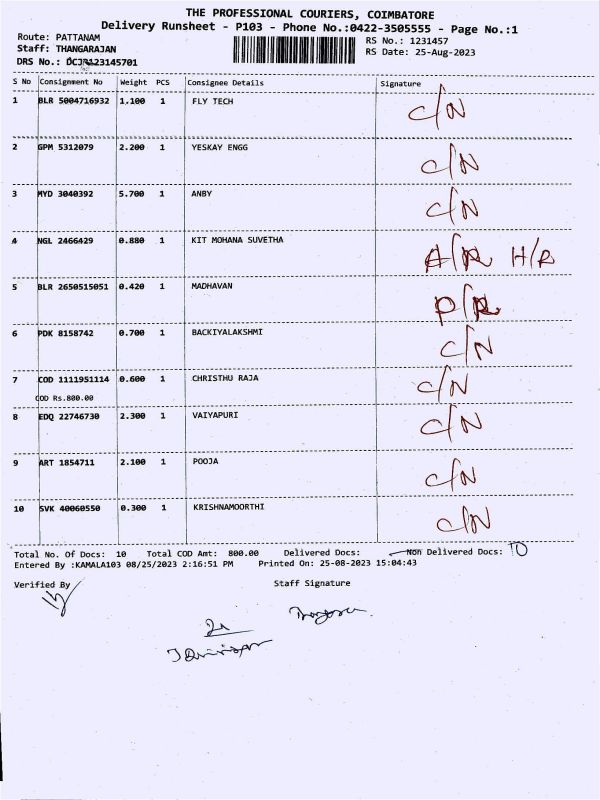 THE PROFESSIONAL COURIERS, COIMBATORE
Delivery Runsheet - P103 - Phone No.:0422-3505555 - Page No.:1
Route: PATTANAM RS No.: 1231457
Staff: THANGARAJAN RS Date: 25-Aug-2023
DRS No.:
S No Consignment No Weight PCS Consignee Details Signature
1 BLR 5004716932 1.100 1 FLY TECH C/N
2 GPM 5312079 2.200 1 YESKAY ENGG C/N
3 MYD 3040392 5.700 1 ANBY C/N
4 NGL 2466429 0.880 1 KIT MOHANA SUVETHA A/R H/R
5 BLR 2650515051 0.420 1 MADHAVAN P/R
6 PDK 8158742 0.700 1 BACKIYALAKSHMI C/N
7 COD 1111951114 0.600 1 CHRISTHU RAJA C/N
COD Rs.800.00
8 EDQ 22746730 2.300 1 VAIYAPURI C/N
9 ART 1854711 2.100 1 POOJA C/N
10 SVK 40060550 0.300 1 KRISHNAMOORTHI C/N
Total No. Of Docs: 10 Total COD Amt: 800.00 Delivered Docs: Non Delivered Docs: 10
Entered By :KAMALA103 08/25/2023 2:16:51 PM Printed On: 25-08-2023 15:04:43
Verified By Staff Signature